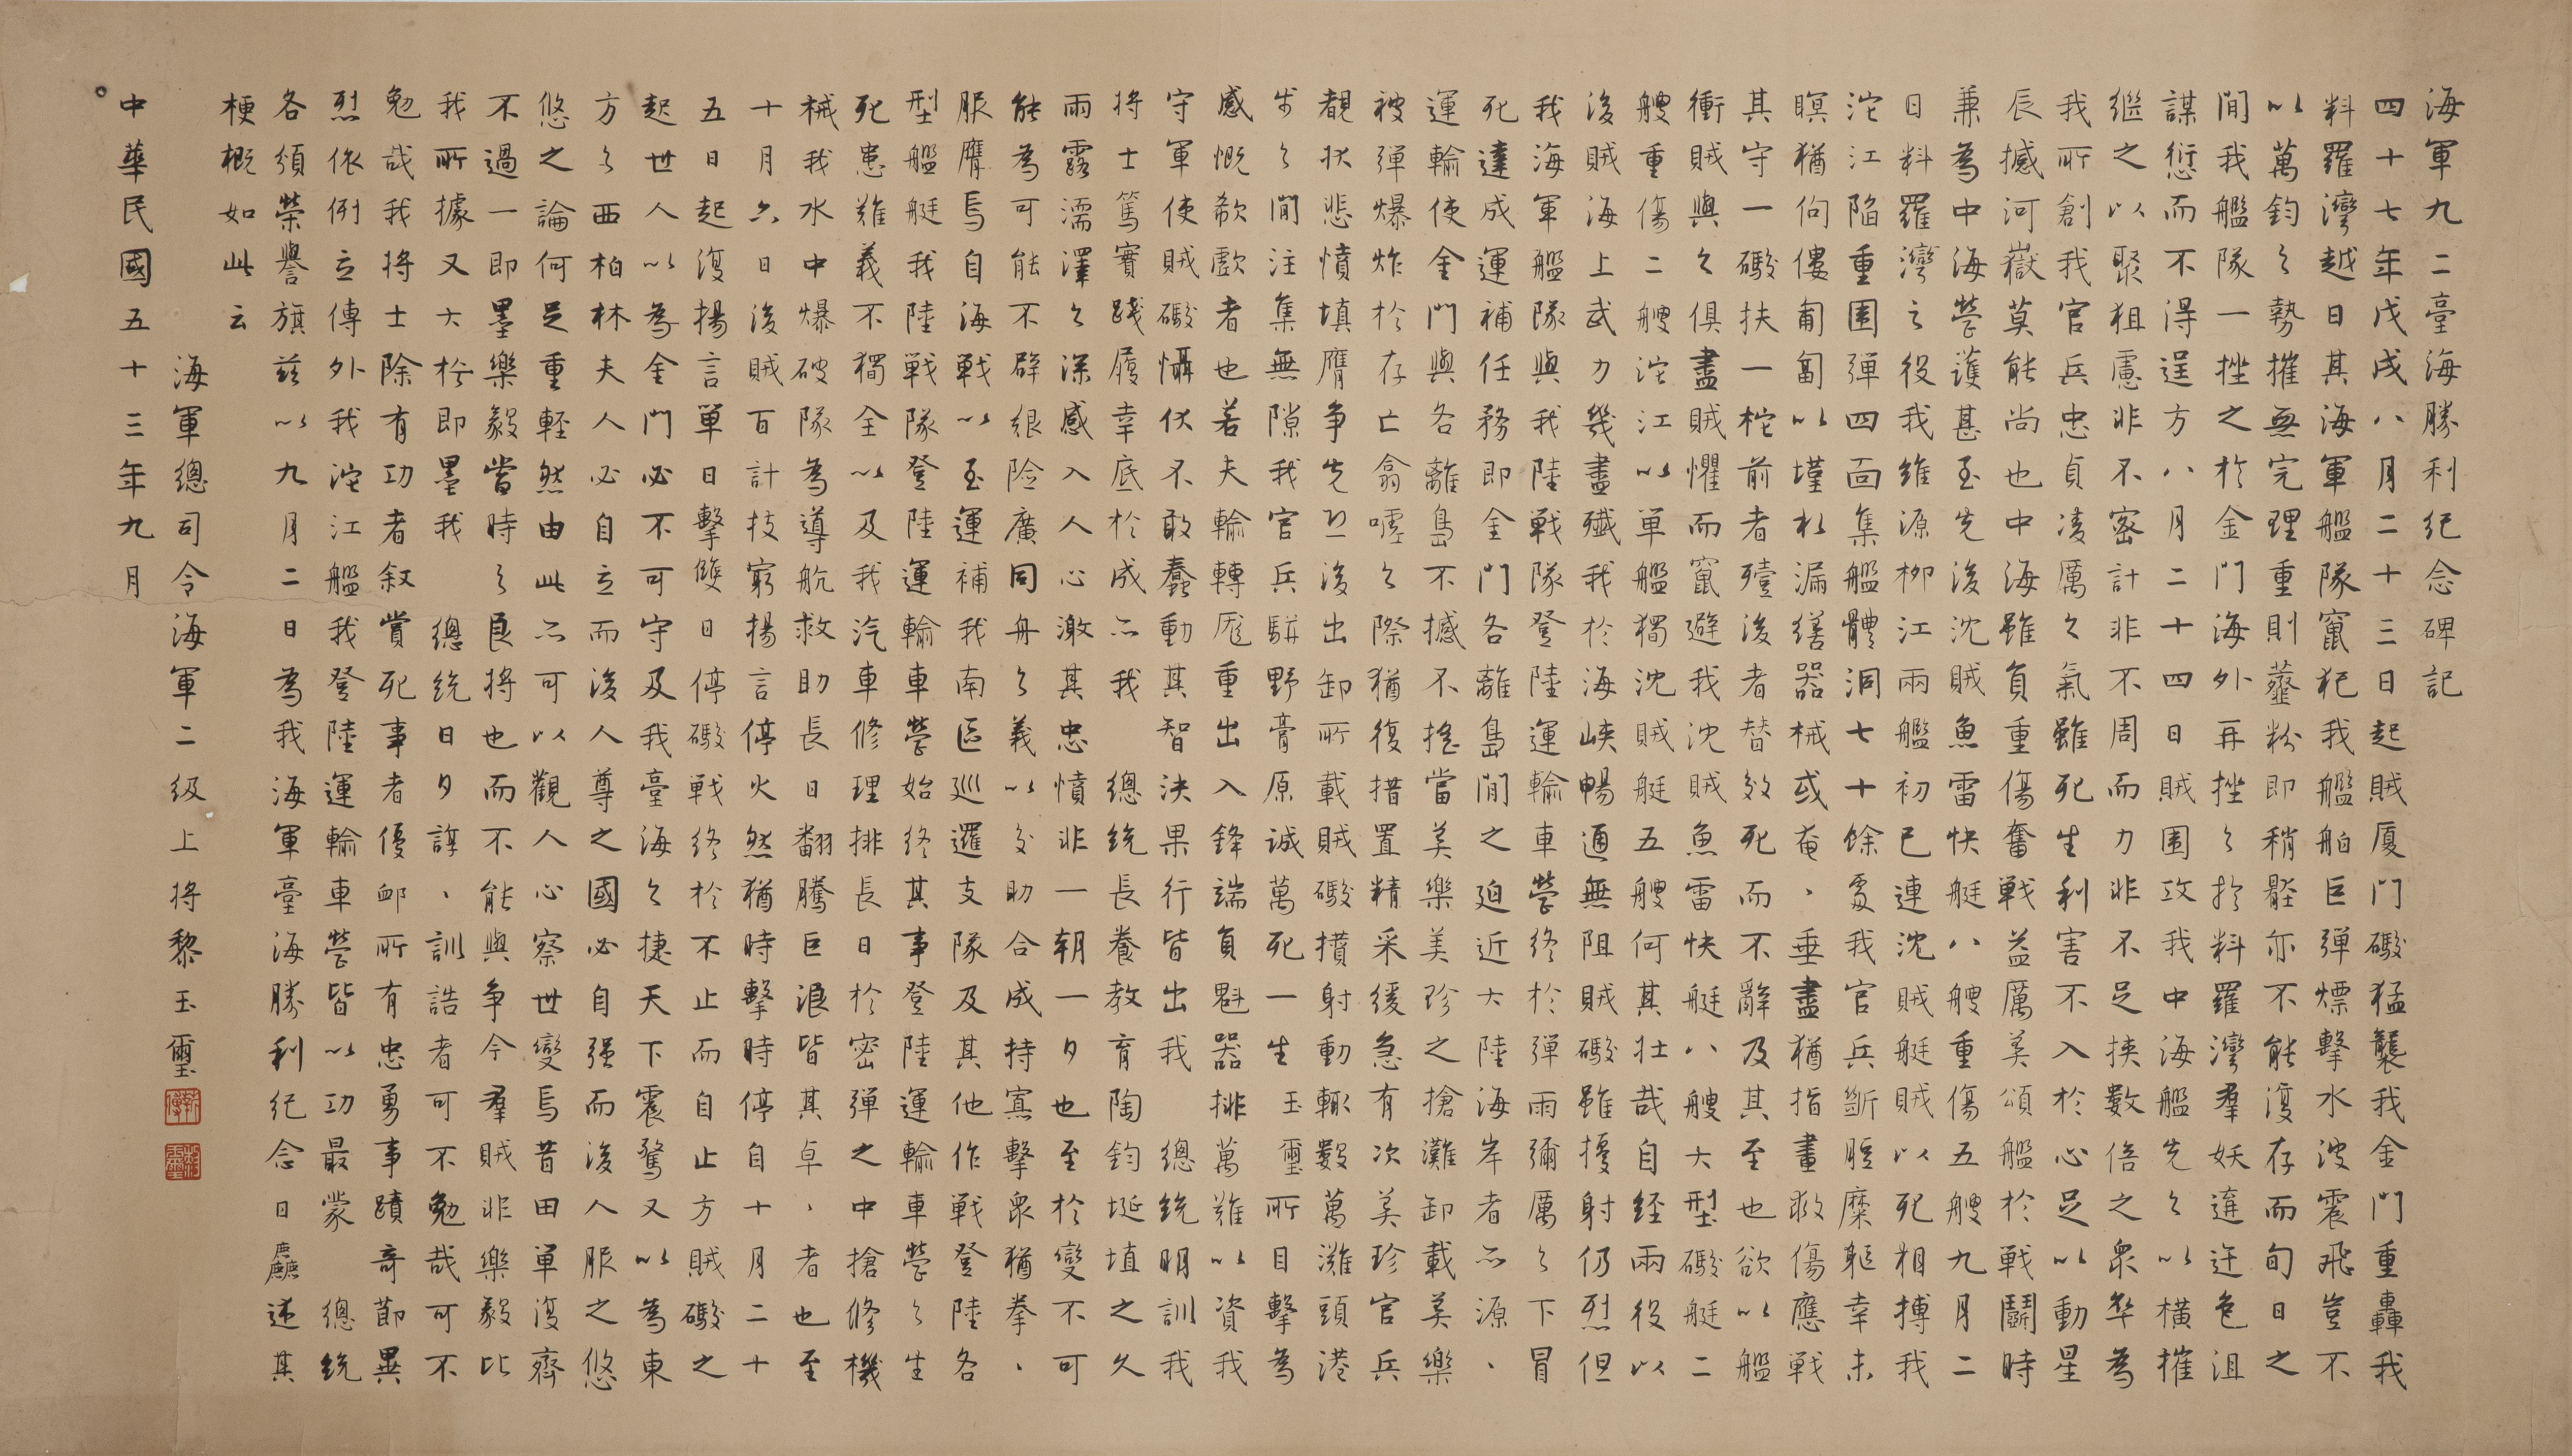 海軍九二臺海勝利紀念碑記
四十七年戊戌八月二十三日起賊廈門礮猛襲我金門重轟我
料羅灣越日其海軍艦隊竄犯我艦舶巨彈熛擊水波震飛豈不
以萬鈞之勢摧無完理重則虀粉即稍髭亦不能復存而旬日之
間我艦隊一挫之於金門海外再挫之於料羅灣羣妖遠迸邑沮
謀愆而不得逞方八月二十四日賊圍攻我中海艦先之以橫摧
繼之以聚狙慮非不密計非不周而力非不足挾數倍之眾卒為
我所創我官兵忠貞凌厲之氣雖死生利害不入於心足以動星
辰撼河嶽莫能尚也中海雖負重傷奮戰益厲美頌艦於戰鬪時
兼為中海營護甚至先後沈賊魚雷快艇八艘重傷五艘九月二
日料羅灣之役我維源柳江兩艦初已連沈賊艇賊以死相搏我
沱江陷重圍彈四面集艦體洞七十餘處我官兵斷脰糜軀幸未
瞑猶佝僂匍匐以墐杜漏繕器械或奄、垂盡猶指畫救傷應戰
其守一礮扶一柁前者殪後者替效死而不辭及其至也欲以艦
衝賊與之俱盡賊懼而竄避我沈賊魚雷快艇八艘大型礮艇二
艘重傷二艘沱江以單艦獨沈賊艇五艘何其壯哉自經兩役以
後賊海上武力幾盡殲我於海峽暢通無阻賊礮雖擾射仍烈但
我海軍艦隊與我陸戰隊登陸運輸車營終於彈雨彌厲之下冒
死達成運補任務即金門各離島間之迫近大陸海岸者亦源、
運輸使金門與各離島不撼不搖當美樂美珍之搶灘卸載美樂
被彈爆炸於存亡翕噓之際猶復措置精采緩急有次美珍官兵
覩狀悲憤填膺爭先恐後出卸所載賊礮攢射動輒數萬灘頭港
步之間注集無隙我官兵駢野膏原誠萬死一生玉璽所目擊為
感慨欷歔者也若夫輪轉厖重出入鋒端負魁器排萬難以資我
守軍使賊礮懾伏不敢蠢動其智決果行皆出我總統明訓我
將士篤實踐履幸底於成亦我總統長養教育陶鈞埏埴之久
雨露濡澤之深感入人心激其忠憤非一朝一夕也至於變不可
能為可能不辟艱險廣同舟之義以交助合成持寡擊眾猶拳、
服膺焉自海戰以至運補我南區巡邏支隊及其他作戰登陸各
型艦艇我陸戰隊登陸運輸車營始終其事登陸運輸車營之生
死患難義不獨全以及我汽車修理排長日於密彈之中搶修機
械我水中爆破隊為導航救助長日翻騰巨浪皆其卓、者也至
十月六日後賊百計技窮揚言停火然猶時擊時停自十月二十
五日起復揚言單日擊雙日停礮戰終於不止而自止方賊礮之
起世人以為金門必不可守及我臺海之捷天下震驚又以為東
方之西柏林夫人必自立而後人尊之國必自強而後人服之悠
悠之論何足重輕然由此亦可以觀人心察世變焉昔田單復齊
不過一即墨樂毅當時之良將也而不能與爭今羣賊非樂毅比
我所據又大於即墨我總統日夕諄、訓誥者可不勉哉可不
勉哉我將士除有功者敘賞死事者優卹所有忠勇事蹟奇節異
烈依例立傳外我沱江艦我登陸運輸車營皆以功最蒙總統
各頒榮譽旗茲以九月二日為我海軍臺海勝利紀念日麤述其
梗概如此云
海軍總司令海軍二級上將黎玉璽
中華民國五十三年九月